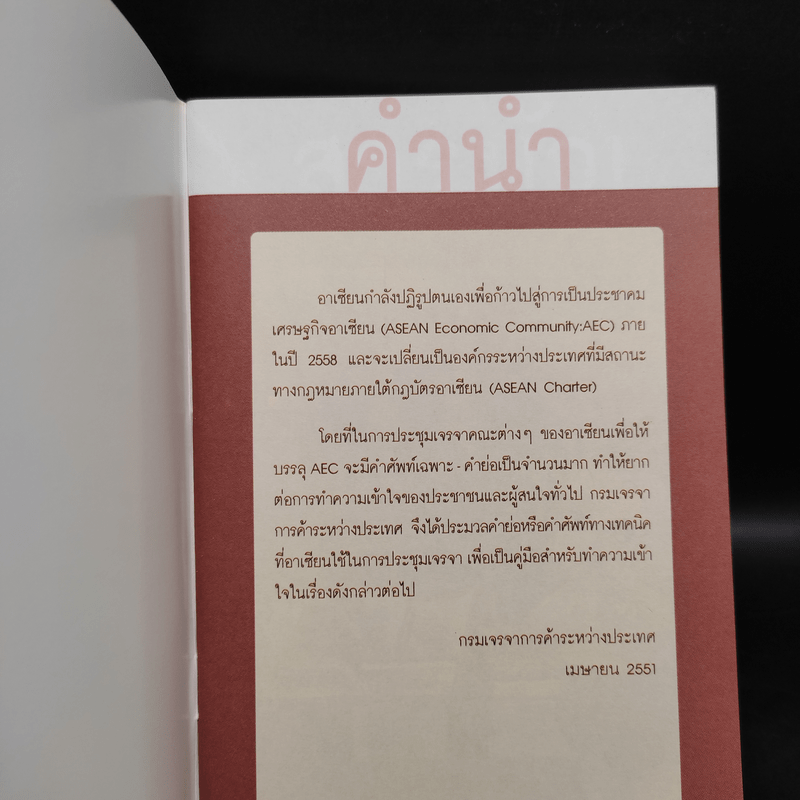 คำนำ
อาเซียนกำลังปฏิรูปตนเองเพื่อก้าวไปสู่การเป็นประชาคม
เศรษฐกิจอาเซียน (ASEAN Economic Community:AEC) ภาย
ในปี 2558 และจะเปลี่ยนเป็นองค์กรระหว่างประเทศที่มีสถานะ
ทางกฎหมายภายใต้กฎบัตรอาเซียน (ASEAN Charter)
โดยที่ในการประชุมเจรจาคณะต่างๆ ของอาเซียนเพื่อให้
บรรลุ AEC จะมีคำศัพท์เฉพาะ - คำย่อเป็นจำนวนมาก ทำให้ยาก
ต่อการทำความเข้าใจของประชาชนและผู้สนใจทั่วไป กรมเจรจา
การค้าระหว่างประเทศ จึงได้ประมวลคำย่อหรือคำศัพท์ทางเทคนิค
ที่อาเซียนใช้ในการประชุมเจรจา เพื่อเป็นคู่มือสำหรับทำความเข้า
ใจในเรื่องดังกล่าวต่อไป
กรมเจรจาการค้าระหว่างประเทศ
เมษายน 2551